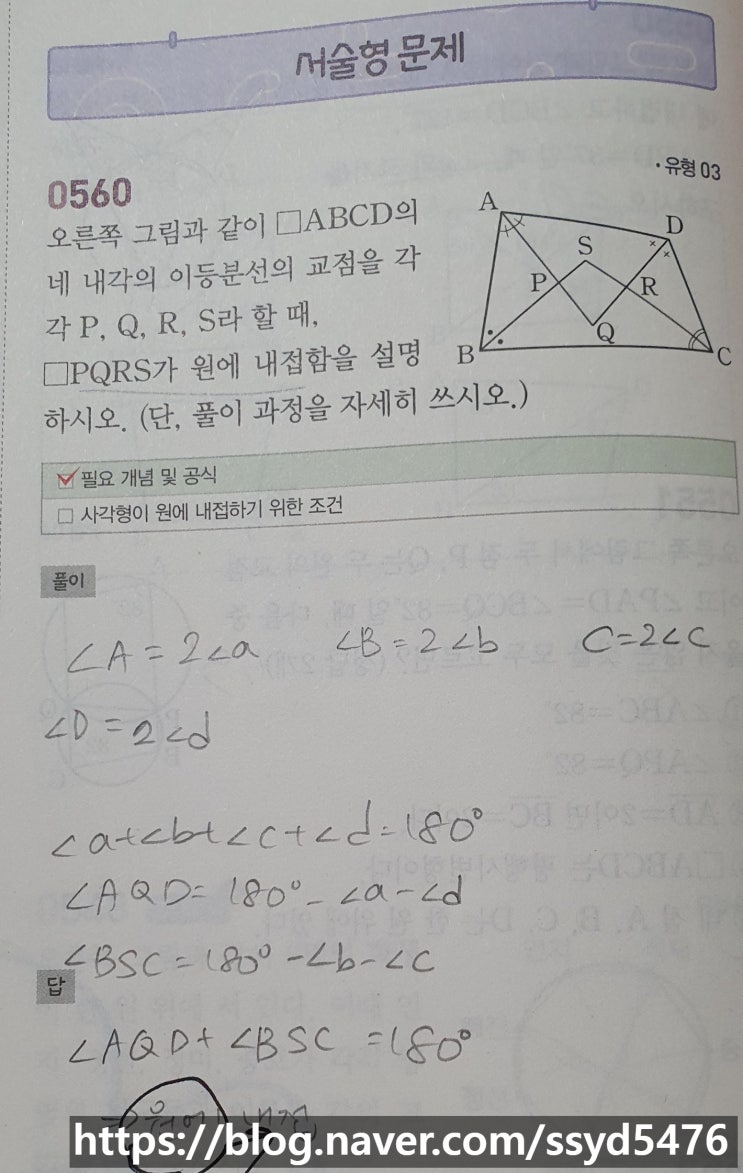 서술형 문제
• 유형 03
0560
오른쪽 그림과 같이 □ABCD의
네 내각의 이등분선의 교점을 각
각 P, Q, R, S라 할 때,
□PQRS가 원에 내접함을 설명
하시오. (단, 풀이 과정을 자세히 쓰시오.)
A
D
S
P
R
Q
B
C
필요 개념 및 공식
□ 사각형이 원에 내접하기 위한 조건
풀이
∠A=2∠a ∠B=2∠b C=2∠c
∠D=2∠d
∠a+∠b+∠c+∠d=180°
∠AQD=180°-∠a-∠d
∠BSC=180°-∠b-∠c
답
∠AQD+∠BSC=180°
원에 내접
https://blog.naver.com/ssyd5476